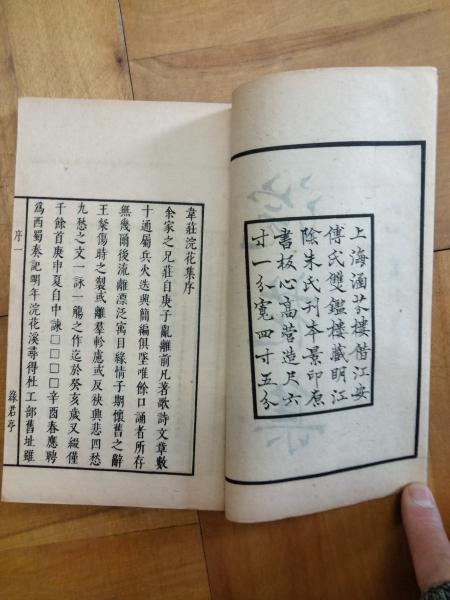 上海涵芬樓借江安
傅氏雙鑑樓藏明江
陰朱氏刊本景印原
書板心高營造尺六
寸一分寬四寸五分
韋莊浣花集序
余家之兄莊自庚子亂離前凡著歌詩文章數
十通屬兵火迭興簡編俱墜唯餘口誦者所存
無幾爾後流離漂泛寓目緣情子期懷舊之辭
王粲傷時之製或離羣軫慮或反袂興悲四愁
九愁之文一詠一觴之作迄於癸亥歲又綴僅
千餘首庚申夏自中諫□□□□辛酉春應聘
爲西蜀奏記明年浣花溪尋得杜工部舊址雖
序一
綠君亭